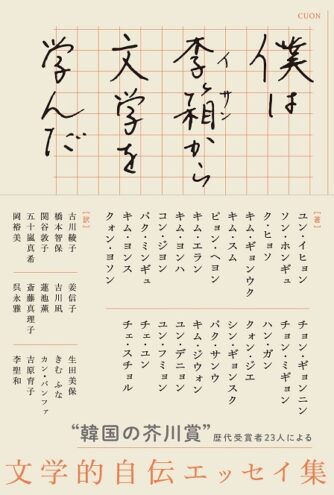 CUON
僕は
李箱から
イサン
文学を
学んだ
[著]
ユン・イヒョン
ソン・ホンギュ
ク・ヒョソ
キム・ギョンウク
キム・スム
ピョン・ヘヨン
キム・エラン
キム・ヨンハ
コン・ジヨン
パク・ミンギュ
キム・ヨンス
クォン・ヨソン
チョン・ギョンニン
チョン・ミギョン
ハン・ガン
クォン・ジエ
シン・ギョンスク
パク・サンウ
キム・ジウォン
ユン・デニョン
ユン・フミョン
チェ・ユン
チェ・スチョル
[訳]
古川綾子
橋本智保
関谷敦子
五十嵐真希
岡裕美
姜信子
吉川凪
蓮池薫
斎藤真理子
呉永雅
生田美保
きむ ふな
カン・バンファ
吉原育子
李聖和
“韓国の芥川賞”歴代受賞者23人による
文学的自伝エッセイ集